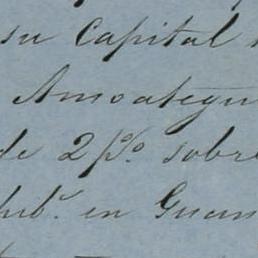 su Capital
Amoategui
de 2 p%o sobre
hib.ª en Guan